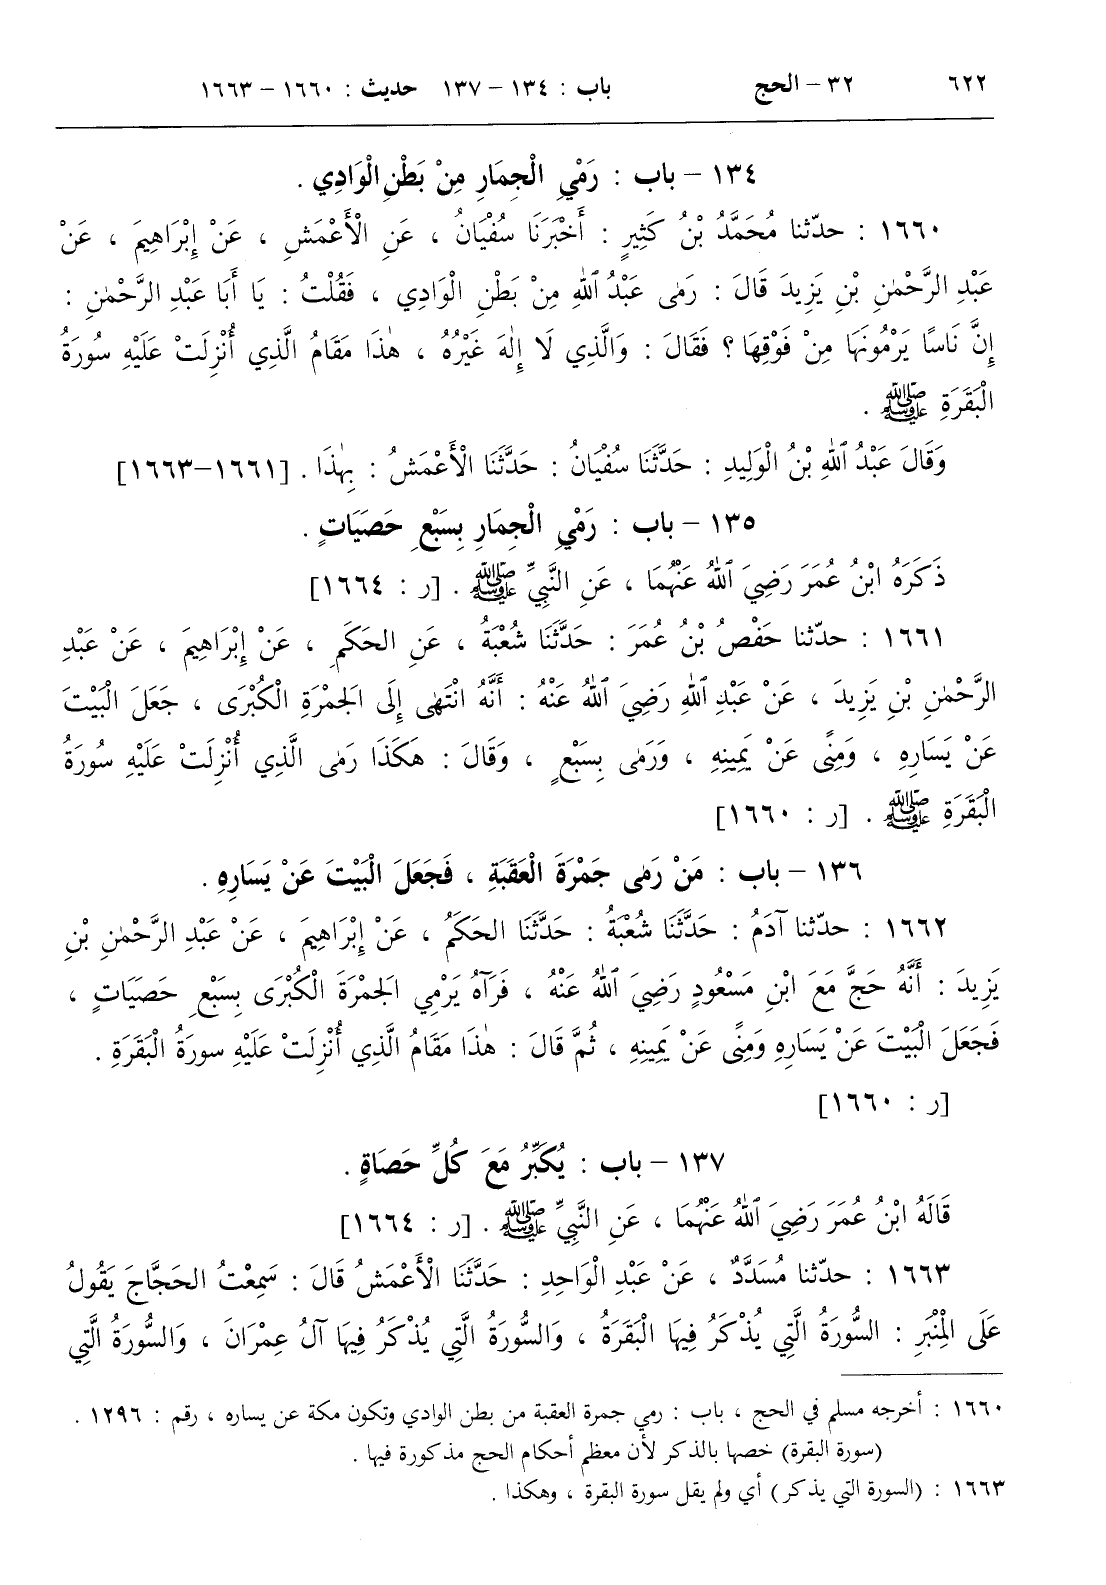 ٦٢٢ ٣٢ - الحج باب : ١٣٤ - ١٣٧ حديث : ١٦٦٠ - ١٦٦٣
١٣٤ - باب : رَمْيِ الْجِمَارِ مِنْ بَطْنِ الْوَادِي .
١٦٦٠ : حدّثنا مُحَمَّدُ بْنُ كَثِيرٍ : أَخْبَرَنَا سُفْيَانُ ، عَنِ الْأَعْمَشِ ، عَنْ إِبْرَاهِيمَ ، عَنْ
عَبْدِ الرَّحْمٰنِ بْنِ يَزِيدَ قَالَ : رَمَى عَبْدُ اللهِ مِنْ بَطْنِ الْوَادِي ، فَقُلْتُ : يَا أَبَا عَبْدِ الرَّحْمٰنِ :
إِنَّ نَاسًا يَرْمُونَهَا مِنْ فَوْقِهَا ؟ فَقَالَ : وَالَّذِي لَا إِلٰهَ غَيْرُهُ ، هٰذَا مَقَامُ الَّذِي أُنْزِلَتْ عَلَيْهِ سُورَةُ
الْبَقَرَةِ ﷺ .
وَقَالَ عَبْدُ اللهِ بْنُ الْوَلِيدِ : حَدَّثَنَا سُفْيَانُ : حَدَّثَنَا الْأَعْمَشُ : بِهٰذَا . [١٦٦١-١٦٦٣]
١٣٥ - باب : رَمْيِ الْجِمَارِ بِسَبْعِ حَصَيَاتٍ .
ذَكَرَهُ ابْنُ عُمَرَ رَضِيَ اللهُ عَنْهُمَا ، عَنِ النَّبِيِّ ﷺ . [ر : ١٦٦٤]
١٦٦١ : حدّثنا حَفْصُ بْنُ عُمَرَ : حَدَّثَنَا شُعْبَةُ ، عَنِ الحَكَمِ ، عَنْ إِبْرَاهِيمَ ، عَنْ عَبْدِ
الرَّحْمٰنِ بْنِ يَزِيدَ ، عَنْ عَبْدِ اللهِ رَضِيَ اللهُ عَنْهُ : أَنَّهُ انْتَهَى إِلَى الجَمْرَةِ الْكُبْرَى ، جَعَلَ الْبَيْتَ
عَنْ يَسَارِهِ ، وَمِنًى عَنْ يَمِينِهِ ، وَرَمَى بِسَبْعٍ ، وَقَالَ : هَكَذَا رَمَى الَّذِي أُنْزِلَتْ عَلَيْهِ سُورَةُ
الْبَقَرَةِ ﷺ . [ر : ١٦٦٠]
١٣٦ - باب : مَنْ رَمَى جَمْرَةَ الْعَقَبَةِ ، فَجَعَلَ الْبَيْتَ عَنْ يَسَارِهِ .
١٦٦٢ : حدّثنا آدَمُ : حَدَّثَنَا شُعْبَةُ : حَدَّثَنَا الحَكَمُ ، عَنْ إِبْرَاهِيمَ ، عَنْ عَبْدِ الرَّحْمٰنِ بْنِ
يَزِيدَ : أَنَّهُ حَجَّ مَعَ ابْنِ مَسْعُودٍ رَضِيَ اللهُ عَنْهُ ، فَرَآهُ يَرْمِي الجَمْرَةَ الْكُبْرَى بِسَبْعِ حَصَيَاتٍ ،
فَجَعَلَ الْبَيْتَ عَنْ يَسَارِهِ وَمِنًى عَنْ يَمِينِهِ ، ثُمَّ قَالَ : هٰذَا مَقَامُ الَّذِي أُنْزِلَتْ عَلَيْهِ سورَةُ الْبَقَرَةِ .
[ر : ١٦٦٠]
١٣٧ - باب : يُكَبِّرُ مَعَ كُلِّ حَصَاةٍ .
قَالَهُ ابْنُ عُمَرَ رَضِيَ اللهُ عَنْهُمَا ، عَنِ النَّبِيِّ ﷺ . [ر : ١٦٦٤]
١٦٦٣ : حدّثنا مُسَدَّدٌ ، عَنْ عَبْدِ الْوَاحِدِ : حَدَّثَنَا الْأَعْمَشُ قَالَ : سَمِعْتُ الحَجَّاجَ يَقُولُ
عَلَى الْمِنْبَرِ : السُّورَةُ الَّتِي يُذْكَرُ فِيهَا الْبَقَرَةُ ، وَالسُّورَةُ الَّتِي يُذْكَرُ فِيهَا آلُ عِمْرَانَ ، وَالسُّورَةُ الَّتِي
١٦٦٠ : أخرجه مسلم في الحج ، باب : رمي جمرة العقبة من بطن الوادي وتكون مكة عن يساره ، رقم : ١٢٩٦ .
(سورة البقرة) خصها بالذكر لأن معظم أحكام الحج مذكورة فيها .
١٦٦٣ : (السورة التي يذكر) أي ولم يقل سورة البقرة ، وهكذا .